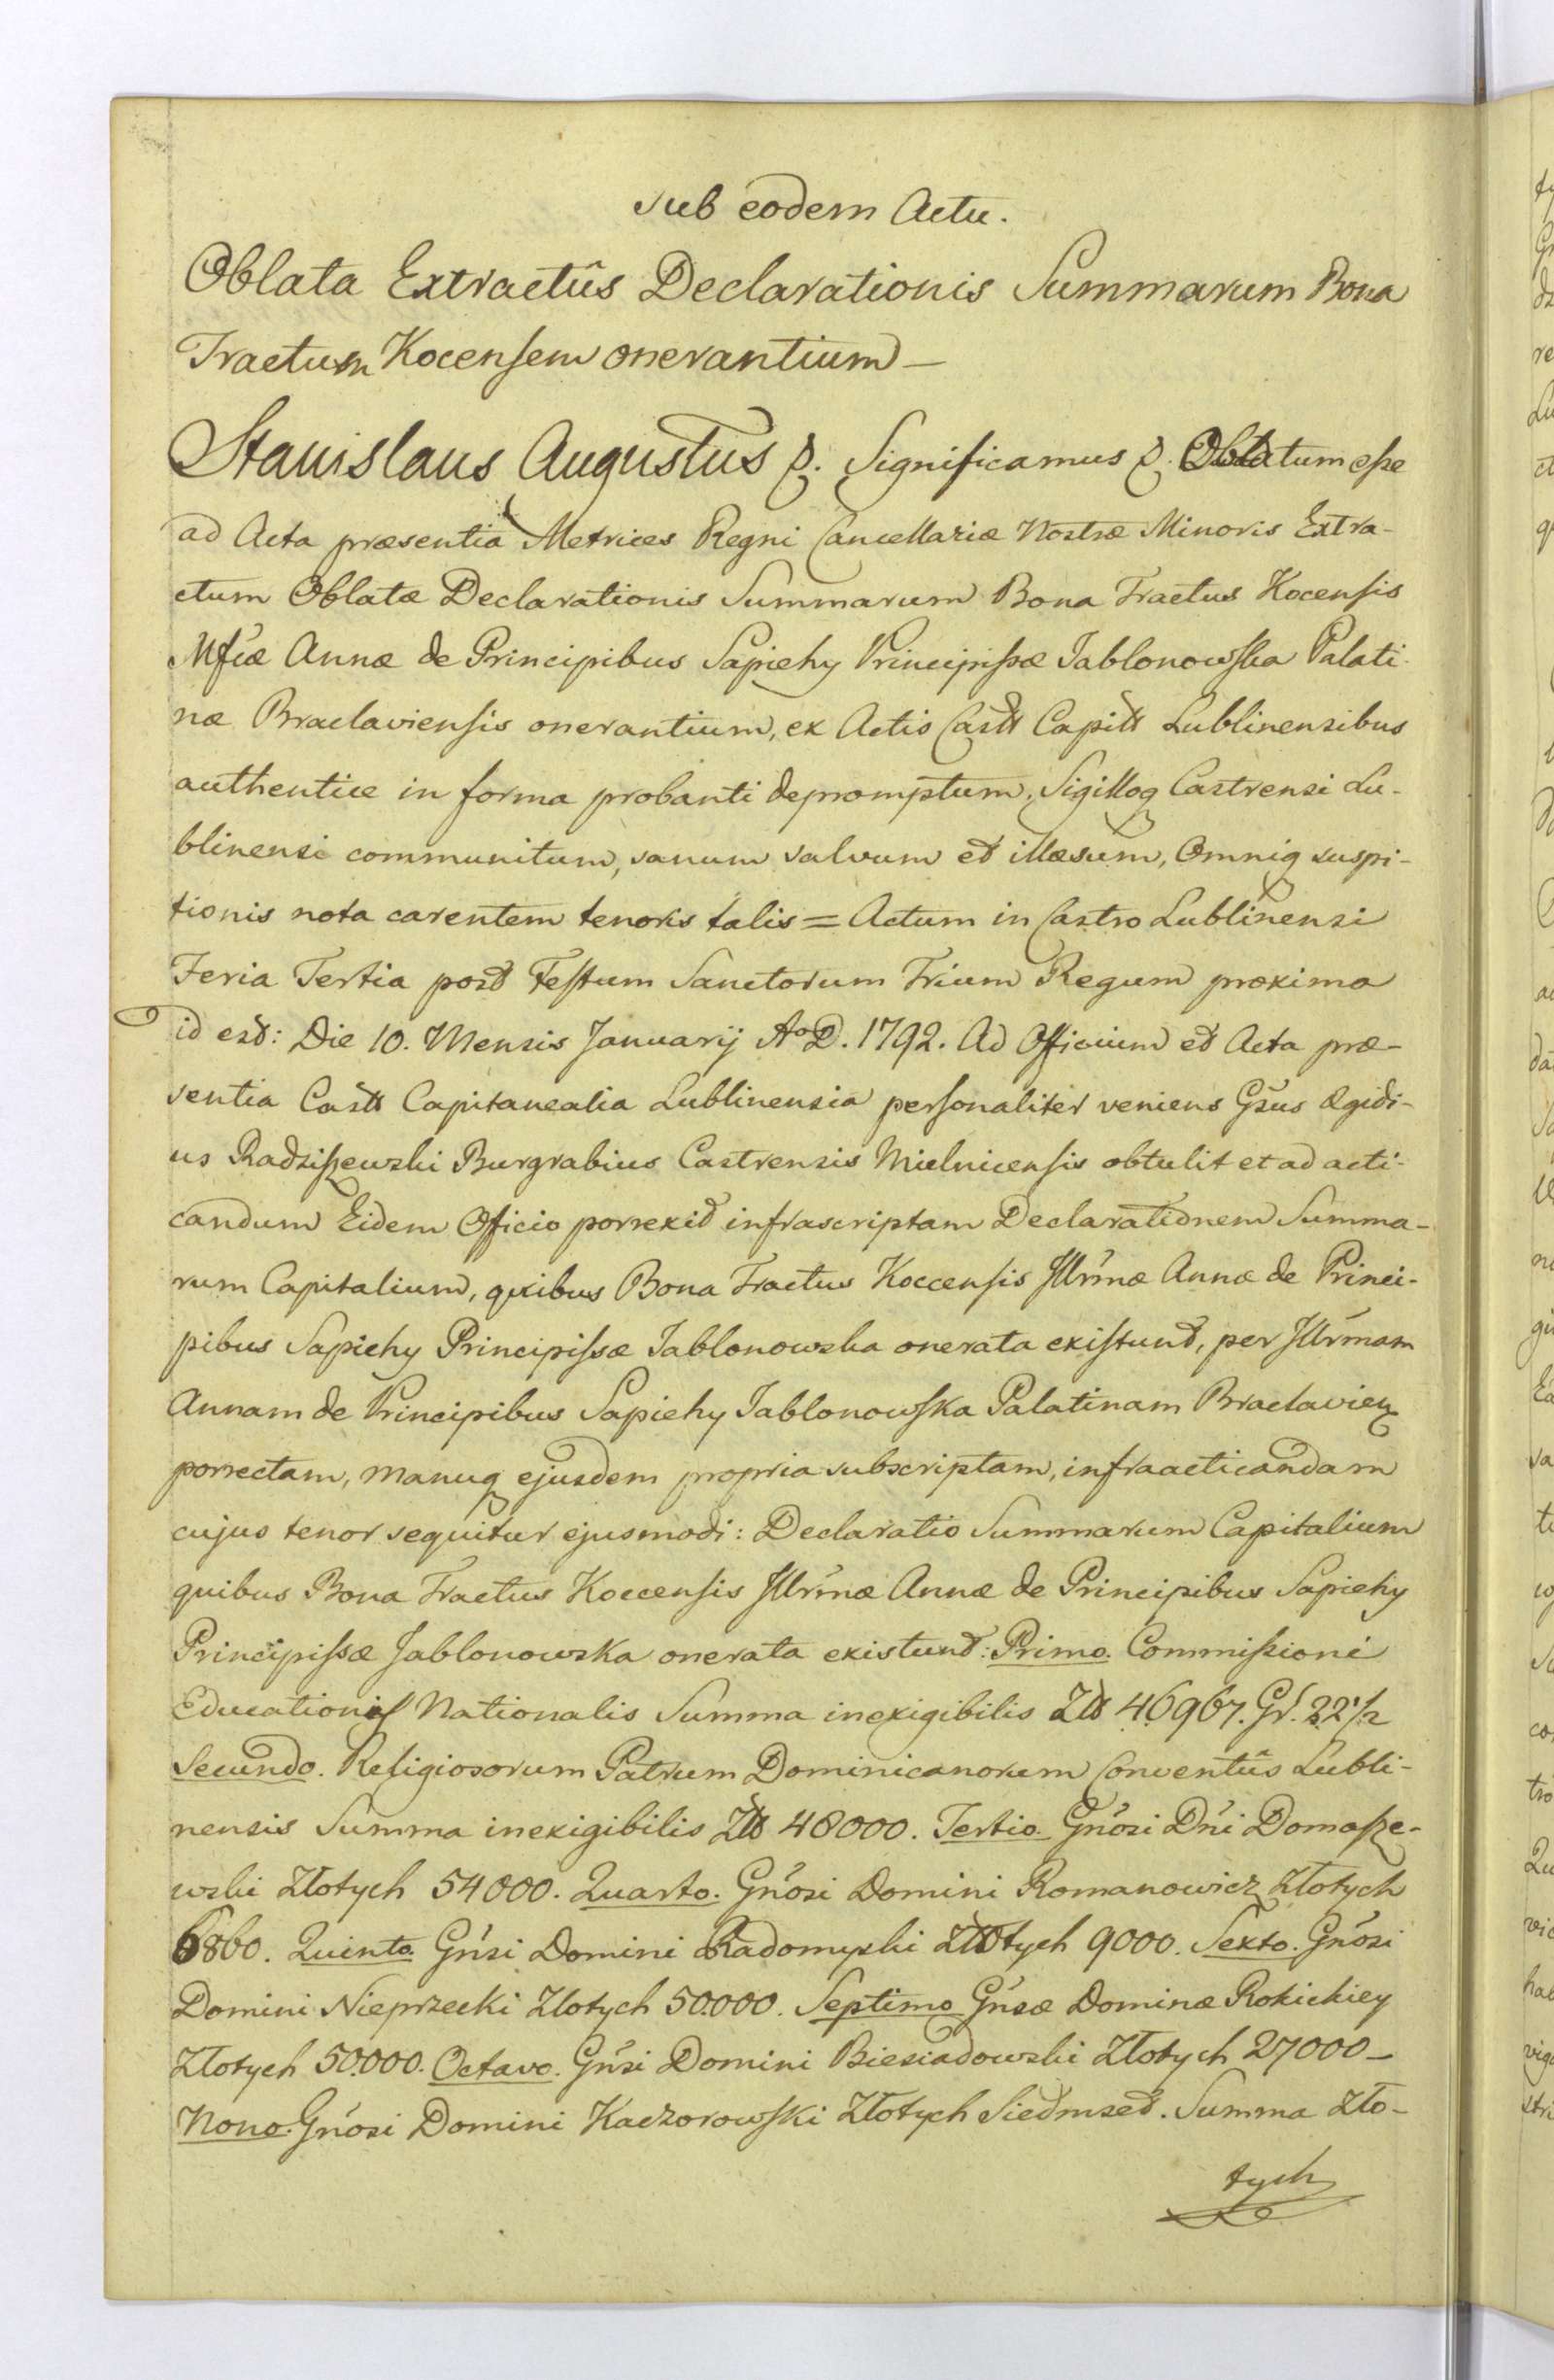 sub eodem Actu.
Oblata Extractûs Declarationis Summarum Bona
Tractum Kocensem onerantium —
Stanislaus Augustus &. Significamus &. Oblatum esse
ad Acta præsentia Metrices Regni Cancellariæ Nostræ Minoris Extra-
ctum Oblatæ Declarationis Summarum Bona Tractus Kocensis
Mficæ Annæ de Principibus Sapiehy Principissæ Jablonowska Palati-
næ Braclaviensis onerantium, ex Actis Castt Capitt Lublinensibus
authentice in forma probanti depromptum, Sigilloq Castrensi Lu-
blinensi communitum, sanum salvum et illæsum, Omniq suspi-
tionis nota carentem tenoris talis = Actum in Castro Lublinensi
Feria Tertia post Festum Sanctorum Trium Regum proxima
id est: Die 10. Mensis Januarij Ao D. 1792. Ad Officium et Acta præ-
sentia Castt Capitanealia Lublinensia personaliter veniens Gsus Ægidi-
us Radziszewski Burgrabius Castrensis Mielnicensis obtulit et ad acti-
candum Eidem Officio porrexit infrascriptam Declarationem Summa-
rum Capitalium, quibus Bona Tractus Koccensis Jllrmæ Annæ de Princi-
pibus Sapiehy Principissæ Jablonowska onerata existunt, per Jllrmam
Annam de Principibus Sapiehy Jablonowska Palatinam Braclavien
porrectam, manuq ejusdem propria subscriptam, infraacticandam
cujus tenor sequitur ejusmodi: Declaratio Summarum Capitalium
quibus Bona Tractus Koccensis Jllrmæ Annæ de Principibus Sapiehy
Principissæ Jablonowska onerata existunt: Primo. Commissioni
Educationis Nationalis Summa inexigibilis Złł 46967. Gr. 22 1/2
Secundo. Religiosorum Patrum Dominicanorum Conventûs Lubli-
nensis Summa inexigibilis Złł 48000. Tertio. Gnosi Dni Domasze-
wski Złotych 54000. Quarto. Gnosi Domini Romanowicz Złotych
6860. Quinto. Gnsi Domini Radomyski Złotych 9000. Sexto. Gnosi
Domini Nieprzecki Zlotych 50.000. Septimo Gnsæ Dominæ Rokickiey
Złotych 50.000. Octavo. Gnsi Domini Biesiadowski Złotych 27000 —
Nono. Gnosi Domini Kaczorowski Złotych Siedmset. Summa Zło-
tych